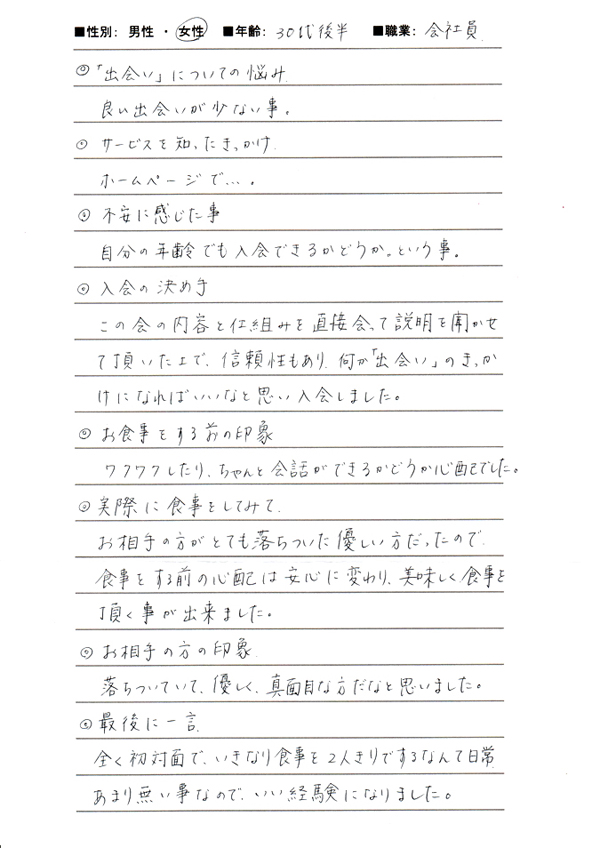 ■性別: 男性 ・ 女性 ■年齢: 30代後半 ■職業: 会社員
◎「出会い」についての悩み
良い出会いが少ない事。
◎ サービスを知ったきっかけ
ホームページで…。
◎ 不安に感じた事
自分の年齢でも入会できるかどうか。という事。
◎ 入会の決め手
この会の内容と仕組みを直接会って説明を聞かせ
て頂いた上で、信頼性もあり、何か「出会い」のきっか
けになればいいなと思い入会しました。
◎ お食事をする前の印象
ワクワクしたり、ちゃんと会話ができるかどうか心配でした。
◎ 実際に食事をしてみて
お相手の方がとても落ちついた優しい方だったので
食事をする前の心配は安心に変わり、美味しく食事を
頂く事が出来ました。
◎ お相手の方の印象
落ちついていて、優しく、真面目な方だなと思いました。
◎ 最後に一言
全く初対面で、いきなり食事を2人きりでするなんて日常
あまり無い事なので、いい経験になりました。